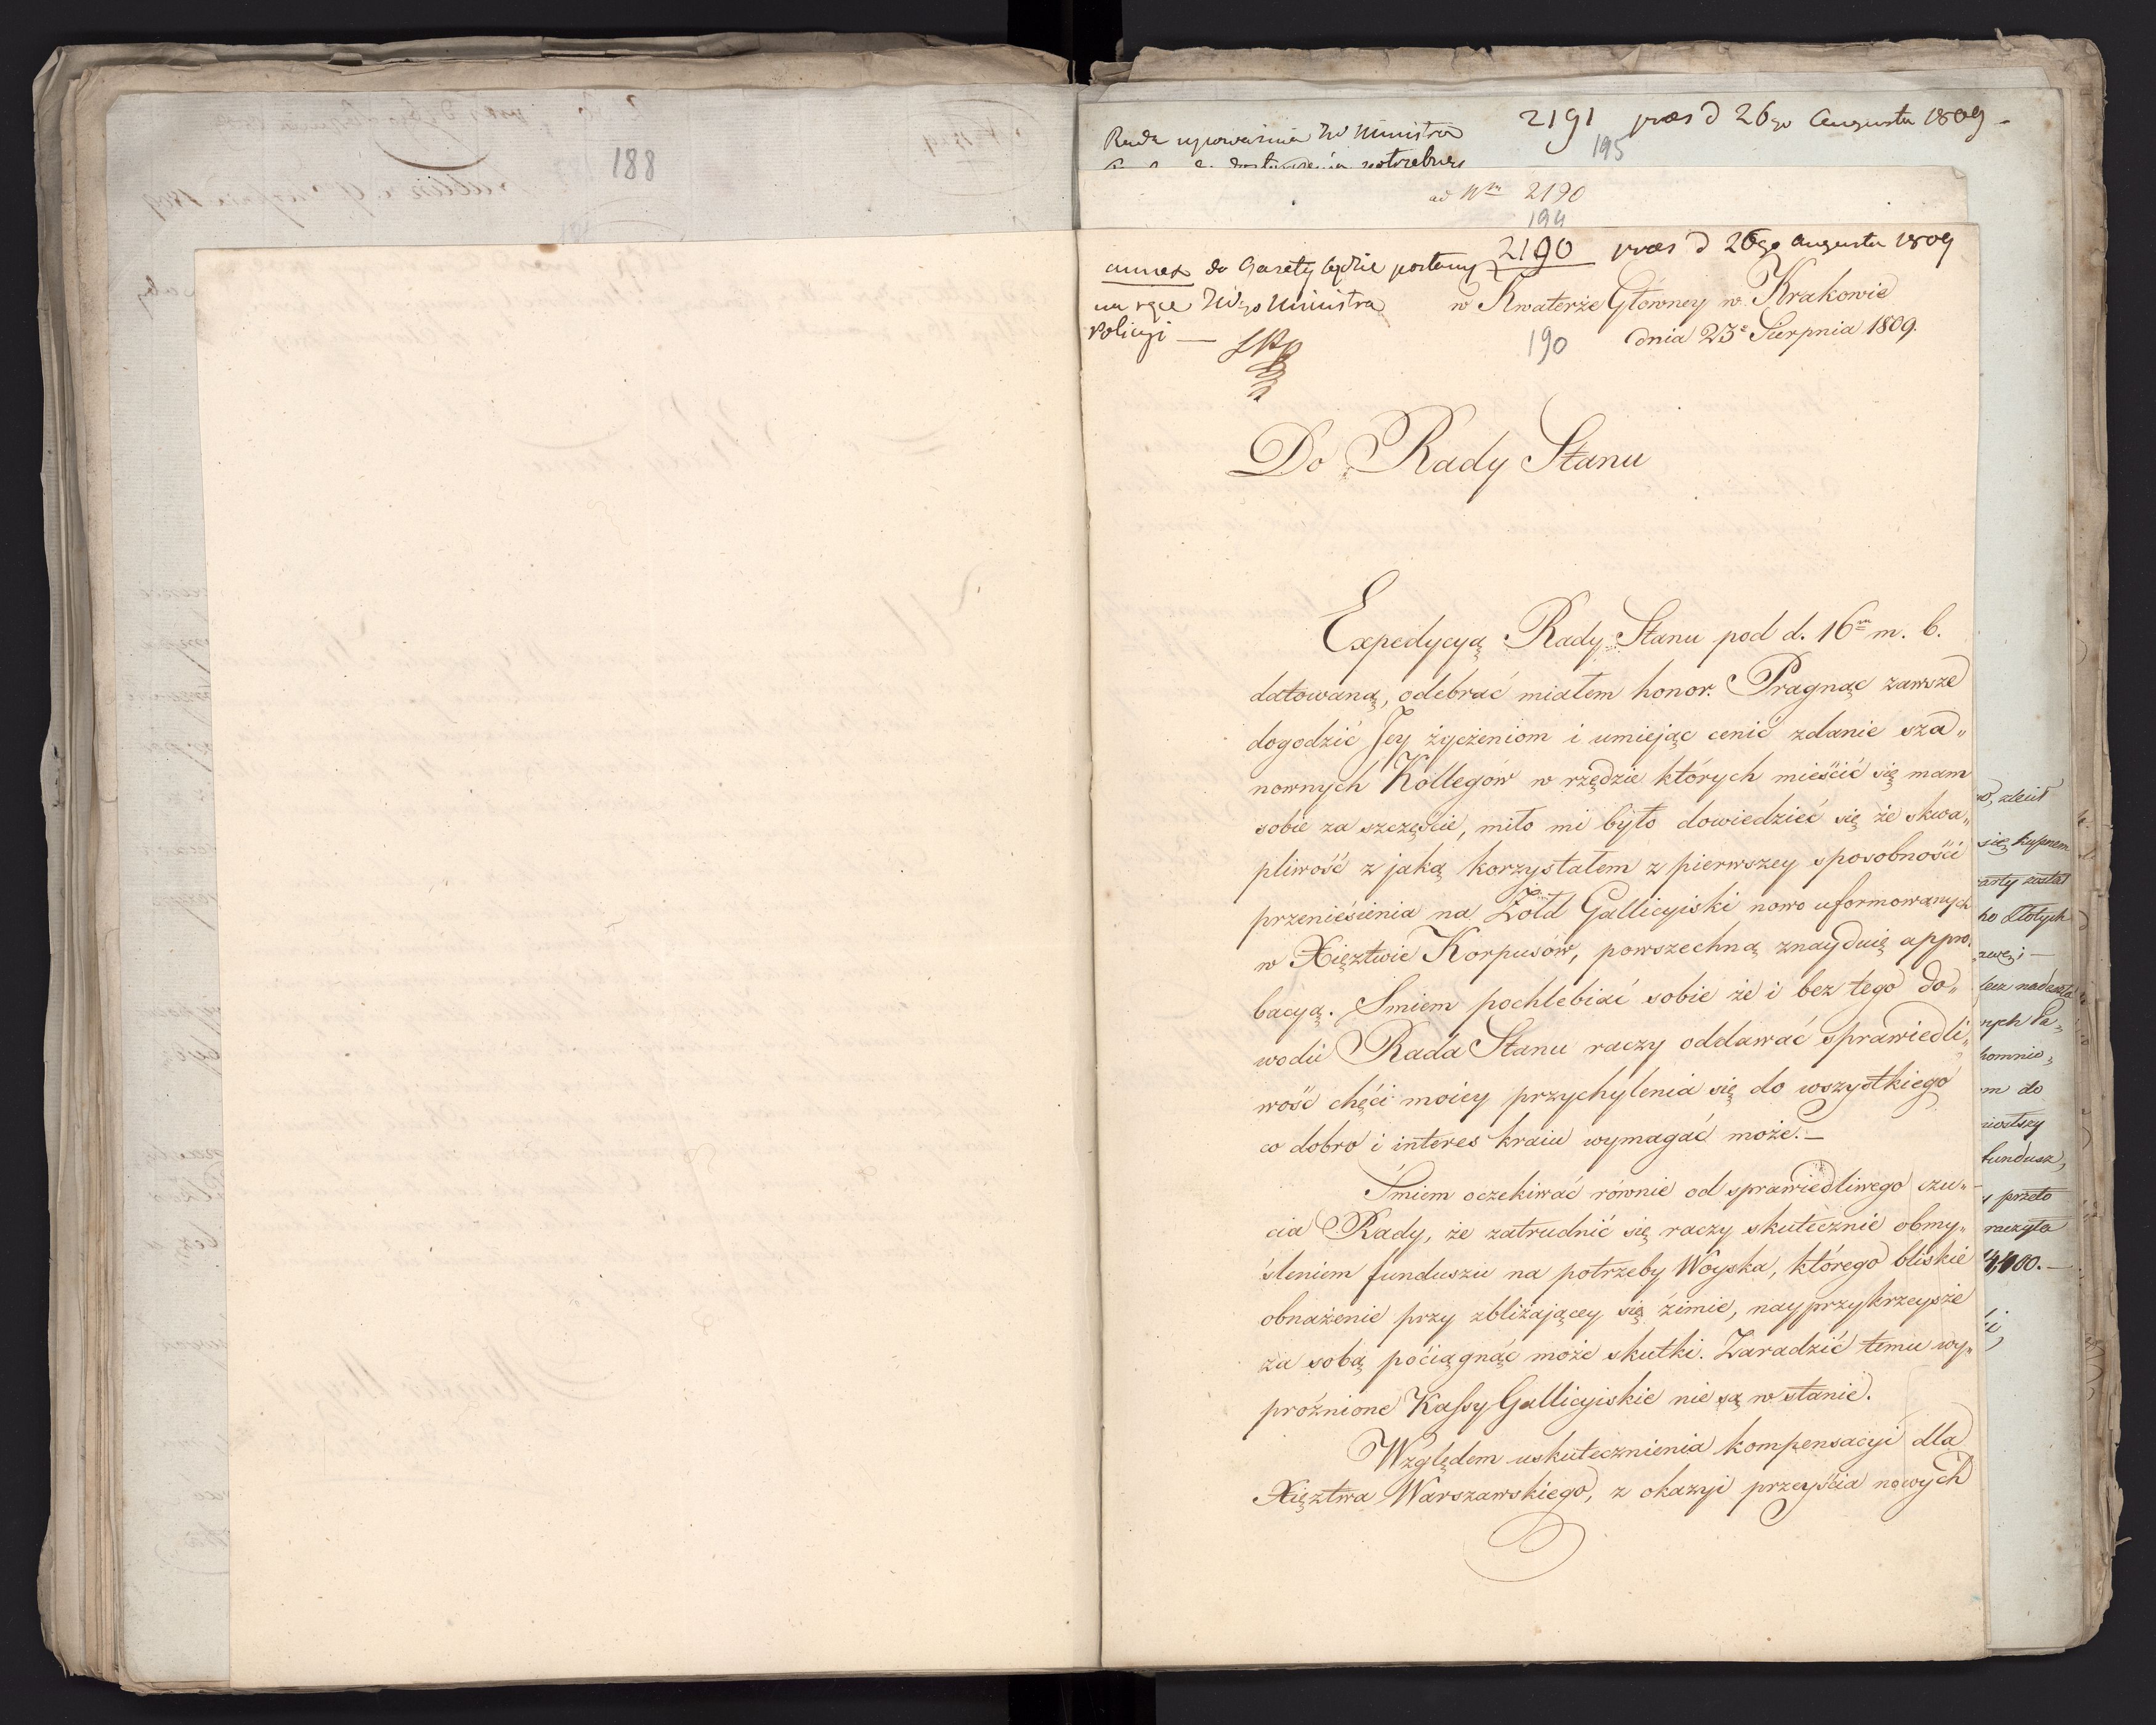 188
2191 præs d 26go Augusta 1809.
195
Rada upoważnia JW Ministra
potrzebney
ad Nm 2190
194
2190 præs d 26go Augusta 1809
annex do Gazety będzie posłany
na ręce JWgo Ministra
Policyi —
w Kwaterze Głowney w Krakowie
dnia 23o Sierpnia 1809.
190
Do Rady Stanu
Expedycyą Rady Stanu pod d. 16m m. b.
datowaną, odebrać miałem honor. Pragnąc zawsze
dogodzić Jey życzeniom i umiejąc cenić zdanie sza„
nownych Kollegów w rzędzie których mieścić się mam
sobie za szczęście, miło mi było dowiedzieć się że skwa„
pliwość z jaką korzystałem z pierwszey sposobności
przeniesienia na Żołd Gallicyiski nowo uformowanych
w Xięztwie Korpusów, powszechną znayduię appro„
bacyą. Smiem pochlebiać sobie że i bez tego do„
wodu Rada Stanu raczy oddawać sprawiedli„
wość chęci moiey przychylenia się do wszystkiego
co dobro i interes kraiu wymagać może. —
Śmiem oczekiwać równie od sprawiedliwego czu„
cia Rady, że zatrudnić się raczy skutecznie obmy„
śleniem funduszu na potrzeby Woyska, którego bliskie
obnażenie przy zbliżającey się zimie, nayprzykrzeysze
za sobą pociągnąć może skutki. Zaradzić temu wy„
próżnione Kassy Gallicyiskie nie są w stanie.
Względem uskutecznienia kompensacyi dla
Xięztwa Warszawskiego, z okazyi przeyścia nowych
się kupnem
został
Złotych
nych Pa„
m do
fundusz,
y przeto
raczyła